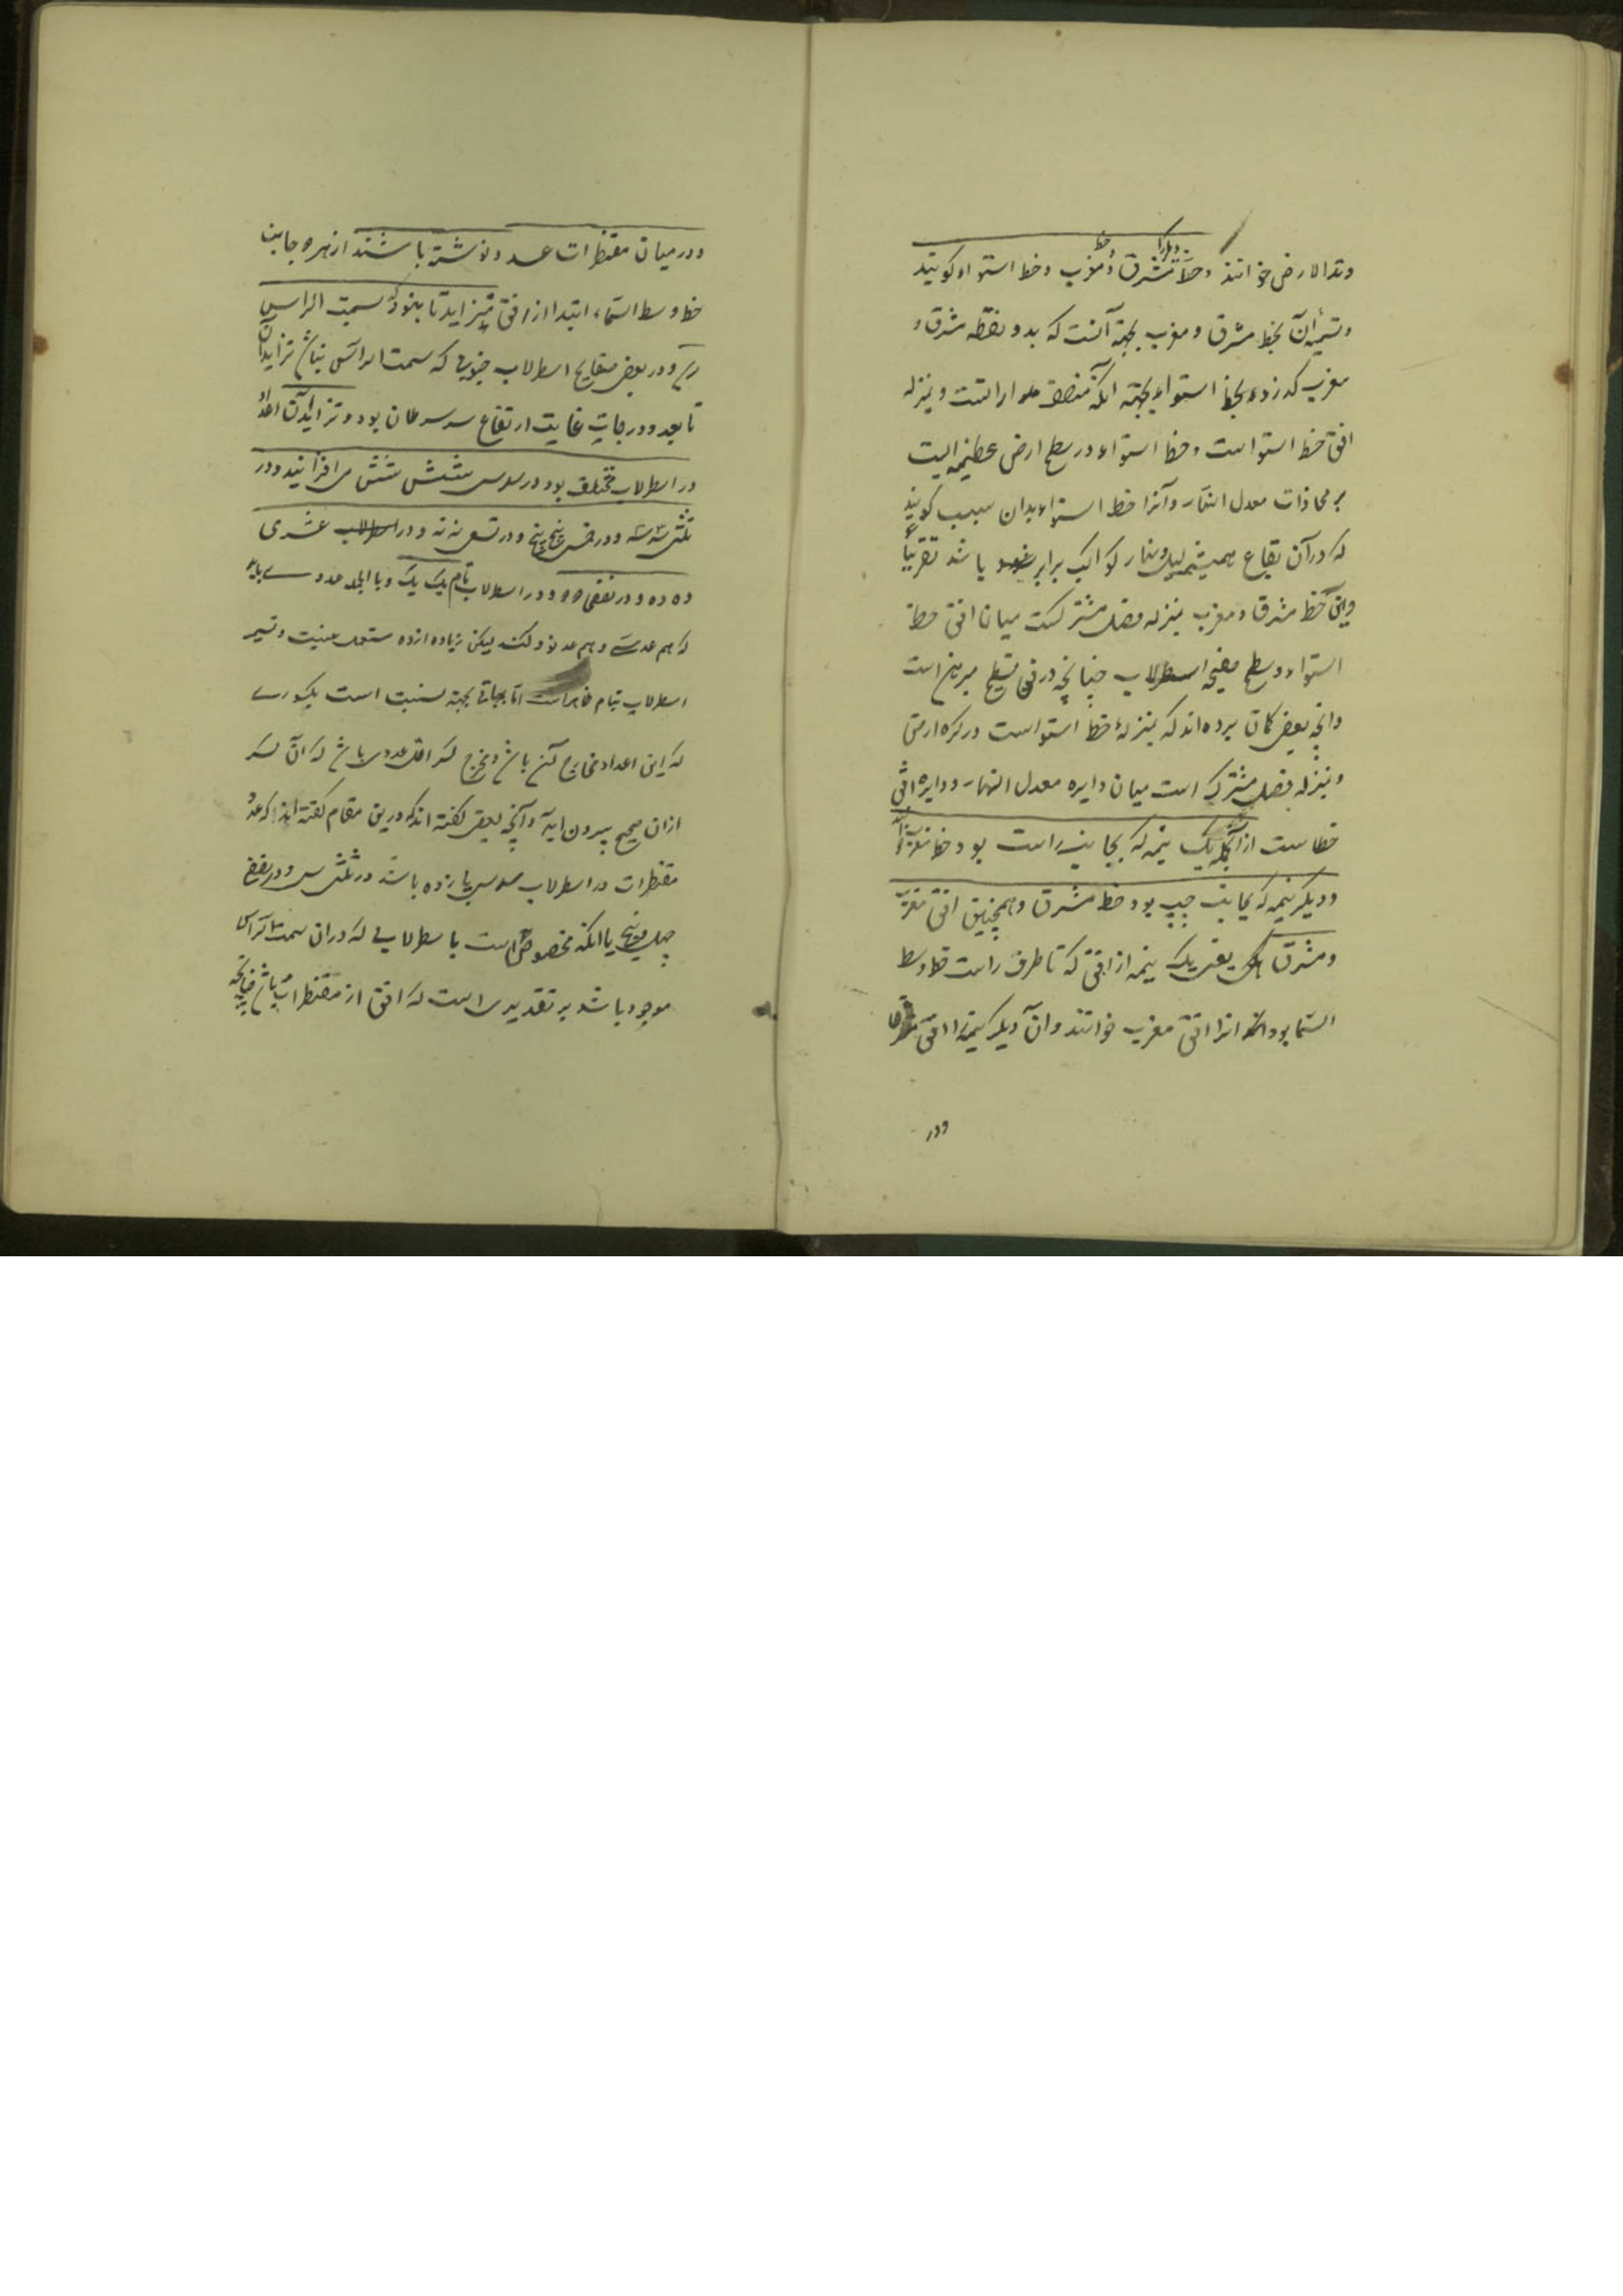 وتد الارض خوانند و خط مشرق و مغرب و خط استواء کویند
و تسمیه آن بخط مشرق و مغرب بجهة آنست که بدو نقطه مشرق و
مغرب کذرد و بخط استواء بجهة آنکه مدار است و بمنزله
افق خط استواست و خط استواء در سطح ارض عظیمه ایست
بر محاذات معدل النهار و آنرا خط استواء بدان سبب کویند
که در آن بقاع همیشه لیل و نهار کواکب برابر باشد تقریباً
و این خط مشرق و مغرب بمنزله فصل مشترکست میان افق خط
استواء و سطح صفیحه اسطرلاب چنانچه در فن تسطیح مبرهن است
و آنچه بعضی کمان برده‌اند که بمنزلهٔ خط استواست در کره ارض
و بمنزله فصل مشترک است میان دایره معدل النهار و دایره افق
خطاست از آنکه یک نیمه که بجانب راست بود خط مغرب
و دیکر نیمه که بجانب چپ بود خط مشرق و همچنین افق مغرب
و مشرق یعنی یک نیمه از افق که تا طرف راست خط وسط
السما بود آنرا افق مغرب خوانند و آن دیکر نیمه را افق مشرق
ودر
و در میان مقنطرات عدد نوشته باشند از هر دو جانب
خط وسط السماء ابتدا از افق متزاید تا بنود که سمت الراس
و در بعضی صفایح اسطرلاب جنوبی که سمت الراس نباشد تزاید آن
تا بعدد درجات غایت ارتفاع سر سرطان بود و تزاید آن اعداد
در اسطرلاب مختلف بود در سدس شش شش می افزایند و در
ثلثی سه سه و در خمس پنج پنج و در تسعی نه نه و در اسطرلاب عشری
ده ده و در نصفی دو دو و در اسطرلاب تام یک یک و بالجمله عددی باید
که هم عدسی و هم عد نود کند لیکن زیاده از ده مستعمل نیست و تسمیه
اسطرلاب بتام ظاهر است اما بجهة نسبت است بکسوری
که این اعداد مخارج آن باشد و مخرج کسر اقل عددی باشد که آن کسر
از آن صحیح بیرون آید و آنچه بعضی کفته اند که درین مقام کفته اند که عدد
مقنطرات در اسطرلاب سدسی پانزده باشد در ثلثی سی و در نصفی
چهل و پنج یا آنکه مخصوص است باسطرلابی که در آن سمت الراس
موجود باشد بر تقدیری است که افق از مقنطرات باشد چنانچه